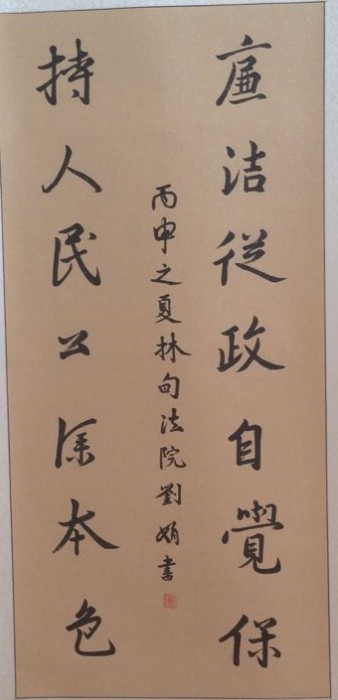 廉洁從政自覺保
持人民公僕本色
丙申之夏林甸法院劉娟書